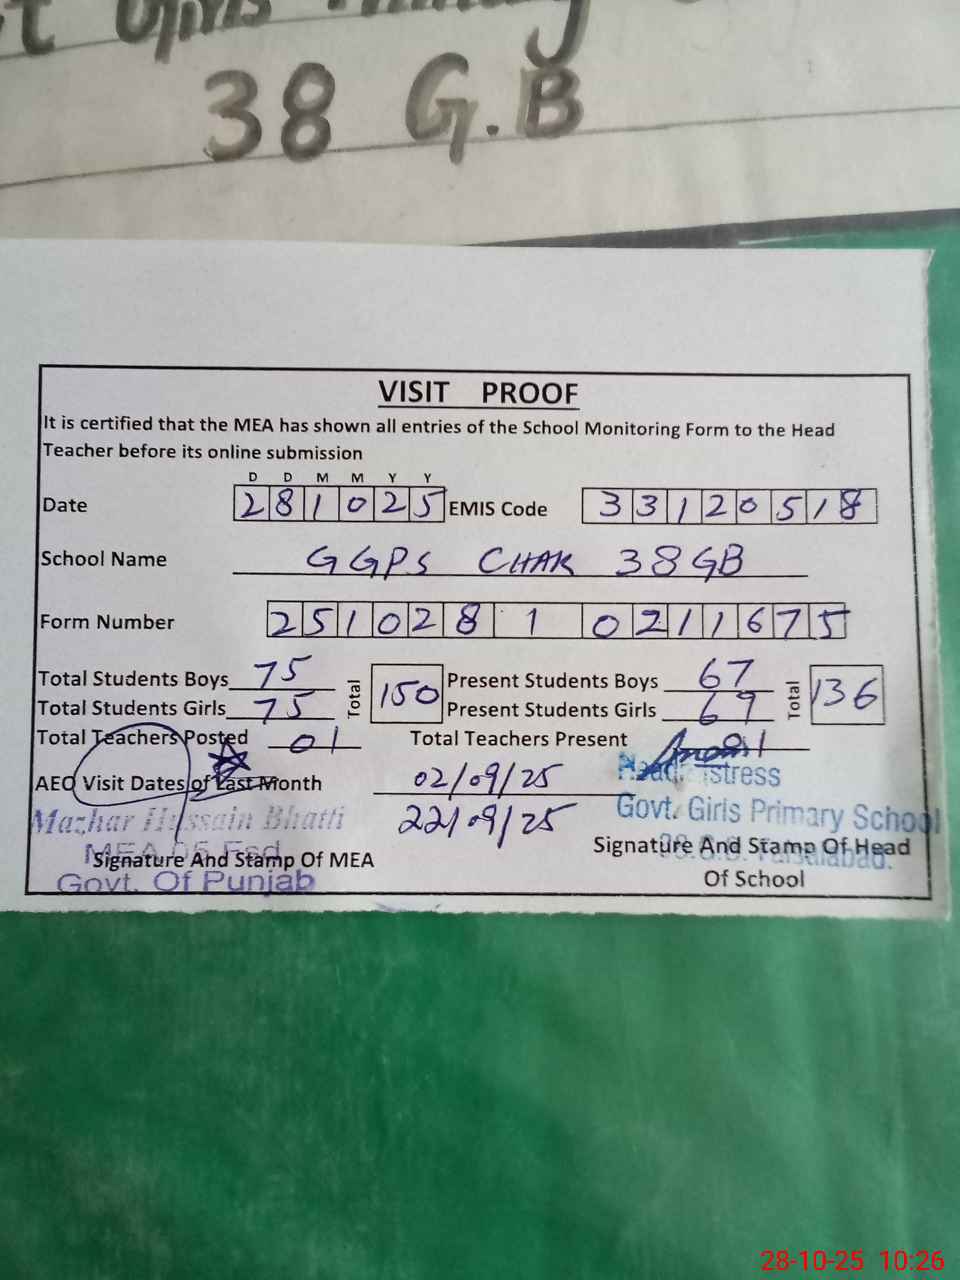 38 G.B
VISIT PROOF
It is certified that the MEA has shown all entries of the School Monitoring Form to the Head
Teacher before its online submission
D D M M Y Y
Date 281025 EMIS Code 33120518
School Name GGPS CHAK 38 GB
Form Number 251028 1 0211675
Total Students Boys 75 Total 150 Present Students Boys 67 Total 136
Total Students Girls 75 Present Students Girls 69
Total Teachers Posted 01 Total Teachers Present 01
AEO Visit Dates of Last Month 02/09/25
22/09/25
Mazhar Hussain Bhatti
MEA 05 Fsd
Signature And Stamp Of MEA
Govt. Of Punjab
Headmistress
Govt. Girls Primary School
38.G.B. Faisalabad.
Signature And Stamp Of Head
Of School
28-10-25 10:26